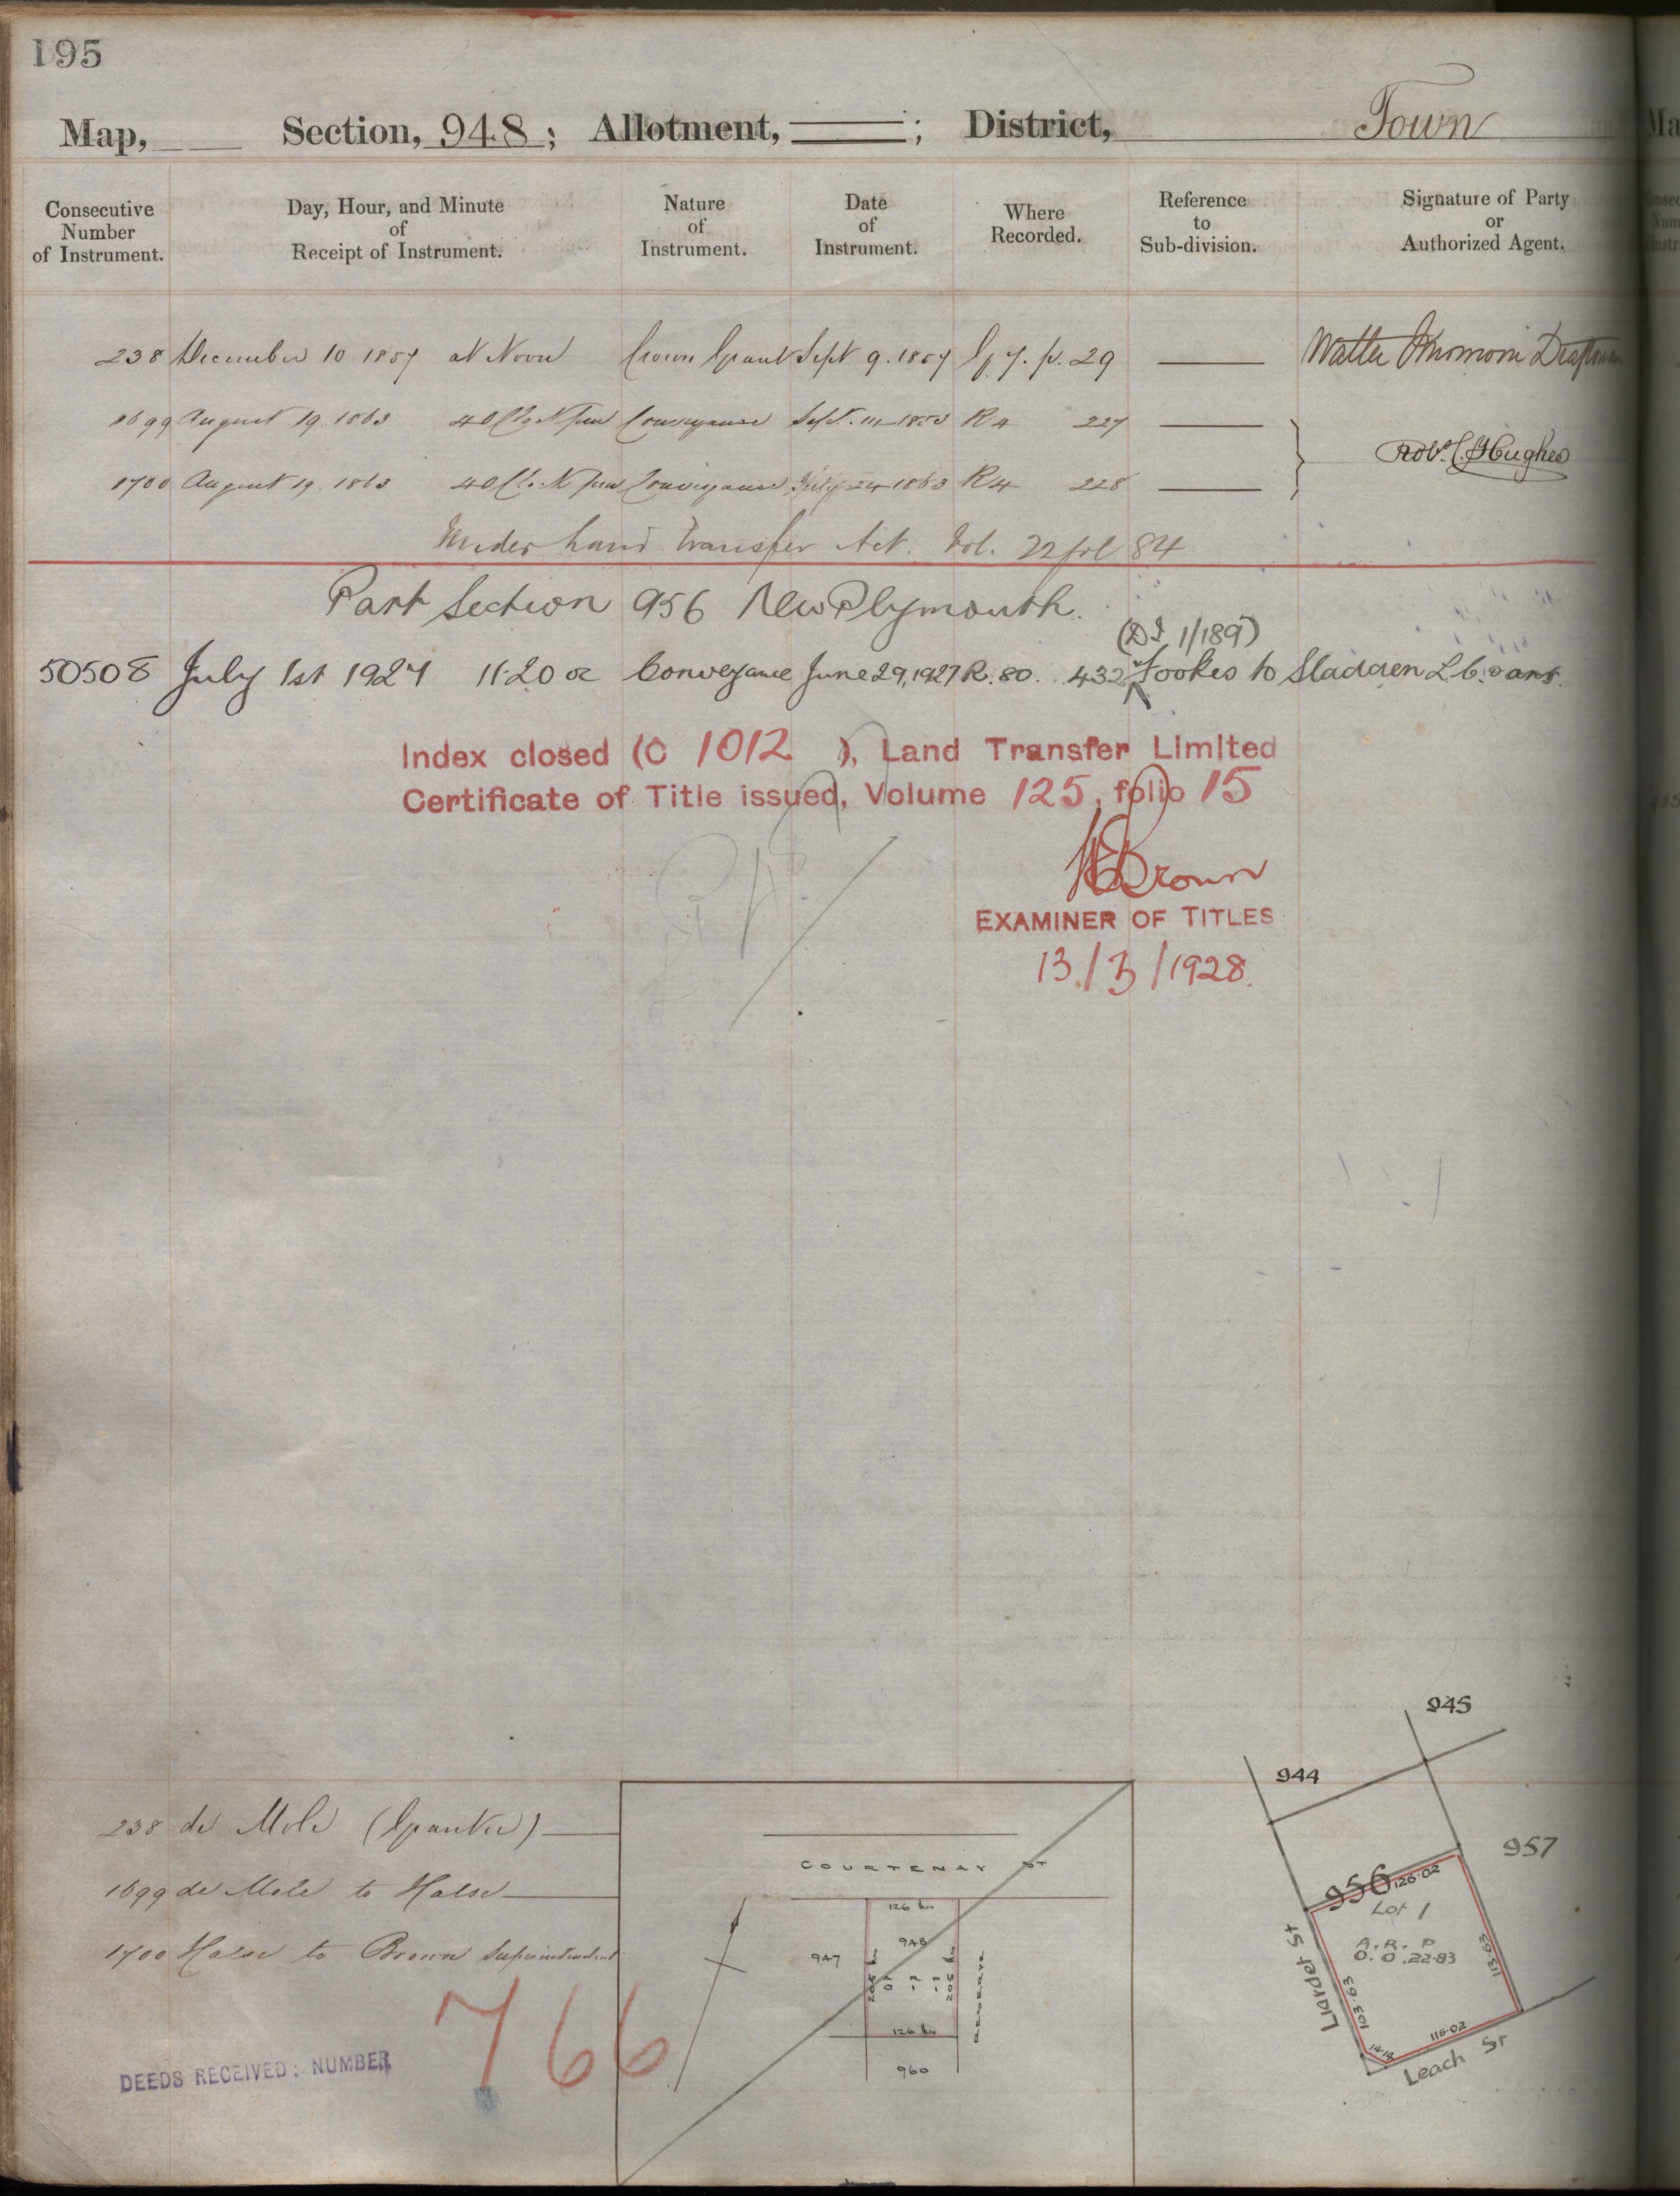 195
Map, Section, 948; Allotment, ; District, Town
Consecutive Number of Instrument.
Day, Hour, and Minute of Receipt of Instrument.
Nature of Instrument.
Date of Instrument.
Where Recorded.
Reference to Sub-division.
Signature of Party or Authorized Agent.
238 December 10 1857 at Noon Crown Grant Sept 9. 1857 G 7. p. 29 Walter
1699 August 19. 1863 Conveyance Sept. 1853 R4 227
Robt. C. Hughes
1700 August 19. 1863 Conveyance July 24 1863 R4 228
Under Land Transfer Act. Vol. 22 fol 84
Part Section 956 New Plymouth.
(DI 1/189)
50508 July 1st 1927 11.20 Conveyance June 29, 1927 R. 80. 432 Fookes to Sladden L.C.
Index closed (C 1012 ), Land Transfer Limited
Certificate of Title issued, Volume 125, folio 15
Brown
EXAMINER OF TITLES
13/3/1928.
238 de Mole (Grantee)
1699 de Mole to Halse
1700 Halse to Brown Superintendent
766
DEEDS RECEIVED: NUMBER
COURTENAY ST
126 lks
948
947
205 lks
205 lks
RESERVE
126 lks
960
945
944
957
956
126.02
Lot 1
A. R. P
0. 0. 22.83
113.63
Liardet St
103.63
14.14
116.02
Leach St